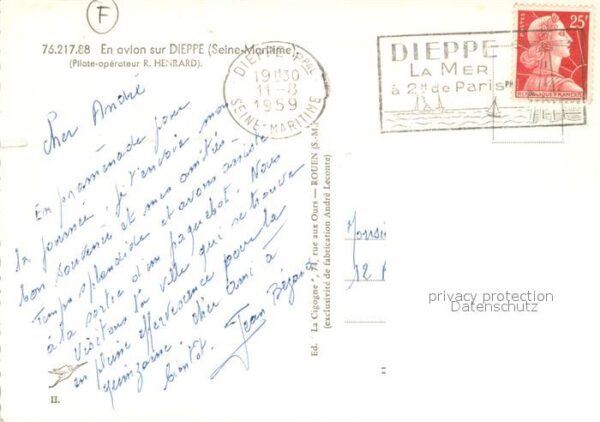 F
76.217.88 En avion sur DIEPPE (Seine-Maritime)
(Pilote-opérateur R. HENRARD).
DIEPPE PPAL
19H30
11-8
1959
SEINE-MARITIME
DIEPPE
LA MER
à 2H de Paris
25F
REPUBLIQUE FRANÇAISE
Cher André
En promenade pour
la journée, je t'envoie mon
bon souvenir et mes amitiés.
Temps splendide et avons assisté
à la sortie d'un paquebot. Nous
visitons la ville qui se trouve
en pleine effervescence pour la
quinzaine. Cher ami à
bientôt.
Jean
II.
Ed. "La Cigogne", 71, rue aux Ours — ROUEN (S.-M.)
(exclusivité de fabrication André Leconte)
Monsie
12
privacy protection
Datenschutz